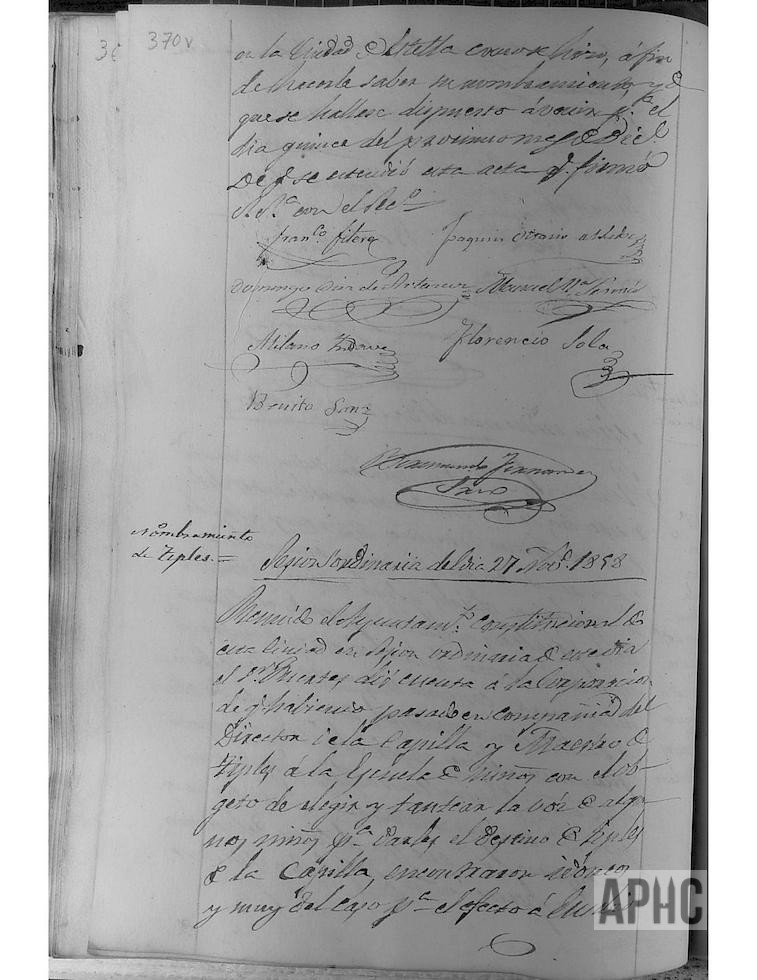 370v
en la Ciudad de Estella como se hizo, á fin
de hacerle saber su nombramiento, y de
que se hallare dispuesto á venir p.ª el
dia quince del proximo mes de Dic.e
De q. se estendió esta acta q. firmó
S.S.ª con el Sec.o
Fran.co Fitero Joaquin Octavio
Domingo Diaz de Manuel M.ª
Milano Florencio Sola
Benito Sanz
Raimundo Fernandez
Nombramiento
de Tiples.=
Sesion ordinaria del dia 27 Nov.e 1858
Reunido el Ayuntam.to Constitucional de
esta Ciudad en sesion ordinaria de este dia
el S.r Fuertes dió cuenta á la Corporacion
de q. habiendo pasado en compañia del
Director de la Capilla y Maestro de
Tiples á la Escuela de niños con el ob-
geto de elegir y tantear la vóz de algu-
nos niños p.ª darles el destino de tiples
de la Capilla, encontraron idoneos
y muy del caso p.ª el efecto á
APHC